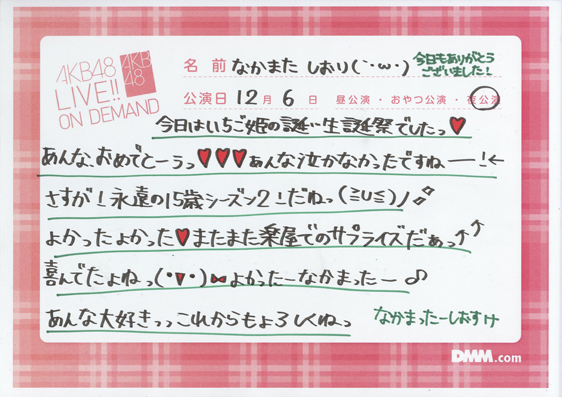 AKB48
LIVE!!
ON DEMAND
AKB
48
名前 なかまた しおり(｀･ω･)
今日もありがとう
ございました!
公演日 12月6日 昼公演・おやつ公演・夜公演
今日はいちご姫の誕い生誕祭でしたっ♥
あんな、おめでとーうっ♥♥♥あんな泣かなかったですねー!←
さすが!永遠の15歳シーズン2!だねっ(≧∪≦)ノ
よかったよかった♥またまた楽屋でのサプライズだぁっ↑↑
喜んでたよねっ(･▼･)よかったーなかまったー
あんな大好きっっこれからもよろしくねっ
なかまったーしおすけ
DMM.com